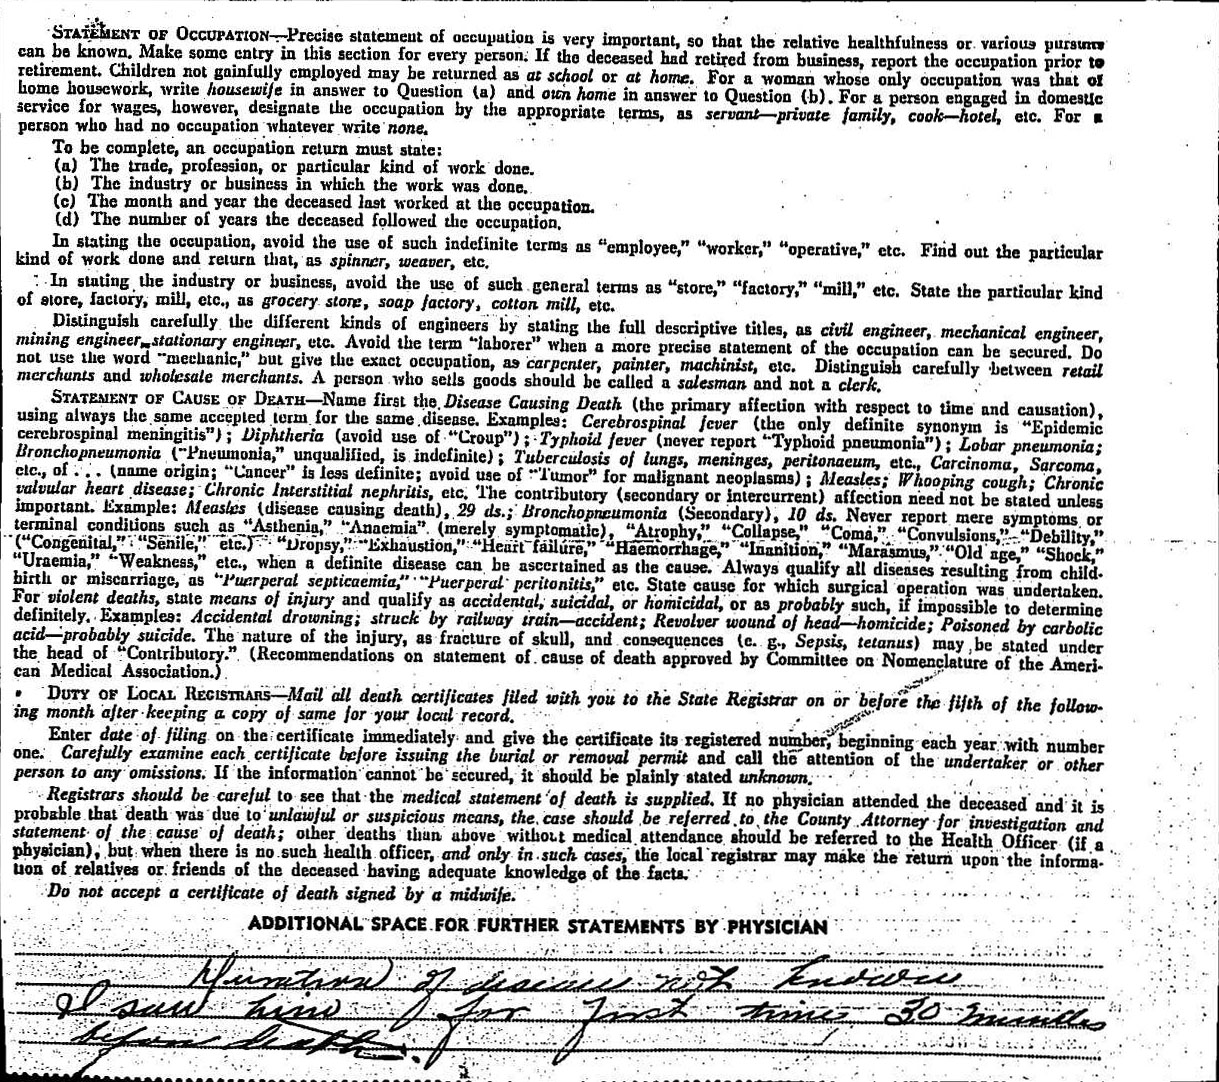 STATEMENT OF OCCUPATION—Precise statement of occupation is very important, so that the relative healthfulness or various pursuits
can be known. Make some entry in this section for every person. If the deceased had retired from business, report the occupation prior to
retirement. Children not gainfully employed may be returned as at school or at home. For a woman whose only occupation was that of
home housework, write housewife in answer to Question (a) and own home in answer to Question (b). For a person engaged in domestic
service for wages, however, designate the occupation by the appropriate terms, as servant—private family, cook—hotel, etc. For a
person who had no occupation whatever write none.
To be complete, an occupation return must state:
(a) The trade, profession, or particular kind of work done.
(b) The industry or business in which the work was done.
(c) The month and year the deceased last worked at the occupation.
(d) The number of years the deceased followed the occupation.
In stating the occupation, avoid the use of such indefinite terms as “employee,” “worker,” “operative,” etc. Find out the particular
kind of work done and return that, as spinner, weaver, etc.
In stating the industry or business, avoid the use of such general terms as “store,” “factory,” “mill,” etc. State the particular kind
of store, factory, mill, etc., as grocery store, soap factory, cotton mill, etc.
Distinguish carefully the different kinds of engineers by stating the full descriptive titles, as civil engineer, mechanical engineer,
mining engineer, stationary engineer, etc. Avoid the term “laborer” when a more precise statement of the occupation can be secured. Do
not use the word “mechanic,” but give the exact occupation, as carpenter, painter, machinist, etc. Distinguish carefully between retail
merchants and wholesale merchants. A person who sells goods should be called a salesman and not a clerk.
STATEMENT OF CAUSE OF DEATH—Name first the Disease Causing Death (the primary affection with respect to time and causation),
using always the same accepted term for the same disease. Examples: Cerebrospinal fever (the only definite synonym is “Epidemic
cerebrospinal meningitis”); Diphtheria (avoid use of “Croup”); Typhoid fever (never report “Typhoid pneumonia”); Lobar pneumonia;
Bronchopneumonia (“Pneumonia,” unqualified, is indefinite); Tuberculosis of lungs, meninges, peritonaeum, etc., Carcinoma, Sarcoma,
etc., of . . . (name origin; “Cancer” is less definite; avoid use of “Tumor” for malignant neoplasms); Measles; Whooping cough; Chronic
valvular heart disease; Chronic Interstitial nephritis, etc. The contributory (secondary or intercurrent) affection need not be stated unless
important. Example: Measles (disease causing death), 29 ds.; Bronchopneumonia (Secondary), 10 ds. Never report mere symptoms or
terminal conditions such as “Asthenia,” “Anaemia” (merely symptomatic), “Atrophy,” “Collapse,” “Coma,” “Convulsions,” “Debility,”
(“Congenital,” “Senile,” etc.) “Dropsy,” “Exhaustion,” “Heart failure,” “Haemorrhage,” “Inanition,” “Marasmus,” “Old age,” “Shock,”
“Uraemia,” “Weakness,” etc., when a definite disease can be ascertained as the cause. Always qualify all diseases resulting from child-
birth or miscarriage, as “Puerperal septicaemia,” “Puerperal peritonitis,” etc. State cause for which surgical operation was undertaken.
For violent deaths, state means of injury and qualify as accidental, suicidal, or homicidal, or as probably such, if impossible to determine
definitely. Examples: Accidental drowning; struck by railway train—accident; Revolver wound of head—homicide; Poisoned by carbolic
acid—probably suicide. The nature of the injury, as fracture of skull, and consequences (e. g., Sepsis, tetanus) may be stated under
the head of “Contributory.” (Recommendations on statement of cause of death approved by Committee on Nomenclature of the Ameri-
can Medical Association.)
DUTY OF LOCAL REGISTRARS—Mail all death certificates filed with you to the State Registrar on or before the fifth of the follow-
ing month after keeping a copy of same for your local record.
Enter date of filing on the certificate immediately and give the certificate its registered number, beginning each year with number
one. Carefully examine each certificate before issuing the burial or removal permit and call the attention of the undertaker or other
person to any omissions. If the information cannot be secured, it should be plainly stated unknown.
Registrars should be careful to see that the medical statement of death is supplied. If no physician attended the deceased and it is
probable that death was due to unlawful or suspicious means, the case should be referred to the County Attorney for investigation and
statement of the cause of death; other deaths than above without medical attendance should be referred to the Health Officer (if a
physician), but when there is no such health officer, and only in such cases, the local registrar may make the return upon the informa-
tion of relatives or friends of the deceased having adequate knowledge of the facts.
Do not accept a certificate of death signed by a midwife.
ADDITIONAL SPACE FOR FURTHER STATEMENTS BY PHYSICIAN
Duration of disease not known
I saw him for first time 30 minutes
before death.